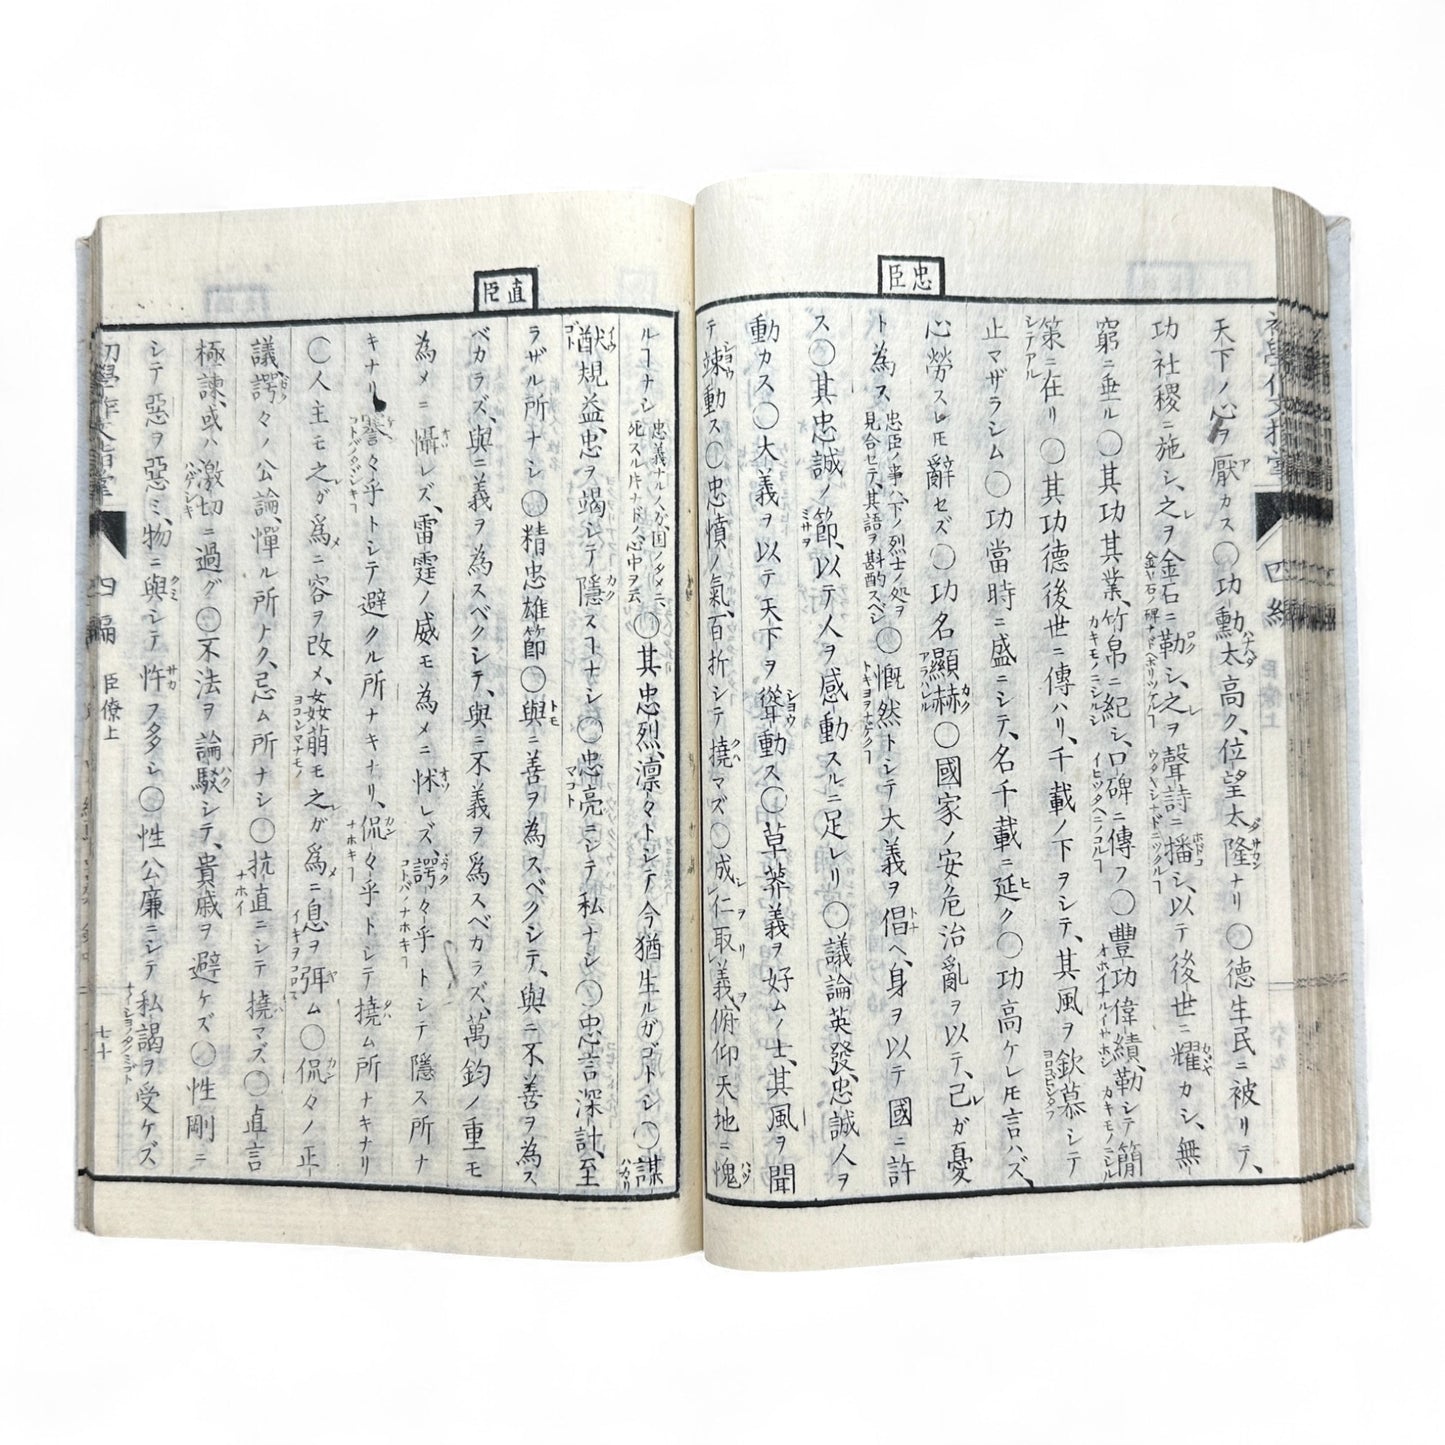 忠臣
天下ノ心ヲ厭カス〇功勳太高ク、位望太隆ナリ〇德生民ニ被リテ、
功社稷ニ施シ、之ヲ金石ニ勒シ、之ヲ聲詩ニ播シ、以テ後世ニ耀カシ、無
窮ニ垂ル〇其功其業、竹帛ニ紀シ、口碑ニ傳フ〇豐功偉績、勒シテ簡
策ニ在リ〇其功德後世ニ傳ハリ、千載ノ下ヲシテ、其風ヲ欽慕シテ
止マザラシム〇功當時ニ盛ニシテ、名千載ニ延ク〇功高ケレ𪜈言ハズ、
心勞スレ𪜈辭セズ〇功名顯赫〇國家ノ安危治亂ヲ以テ、己ガ憂
ト為ス 忠臣ノ事ハ、下ノ烈士ノ処ヲ見合セテ、其語ヲ斟酌スベシ〇慨然トシテ大義ヲ倡ヘ、身ヲ以テ國ニ許
ス〇其忠誠ノ節、以テ人ヲ感動スルニ足レリ〇議論英發、忠誠人ヲ
動カス〇大義ヲ以テ天下ヲ聳動ス〇草莽義ヲ好ムノ士、其風ヲ聞
テ竦動ス〇忠憤ノ氣、百折シテ撓マズ〇成仁取義、俯仰天地ニ愧
ルヿナシ 忠義ナル人ガ、国ノタメニ、死スル片ナドノ、心中ヲ云〇其忠烈、凛々トシテ今猶生ルガゴトシ〇謀
猷規益、忠ヲ竭シテ隱スヿナシ〇忠亮ニシテ私ナシ〇忠言深計、至
ラザル所ナシ〇精忠雄節〇與ニ善ヲ為スベクシテ、與ニ不善ヲ為ス
直臣
ベカラズ、與ニ義ヲ為スベクシテ、與ニ不義ヲ爲スベカラズ、萬鈞ノ重モ
為メニ懾レズ、雷霆ノ威モ為メニ怵レズ、諤々乎トシテ隱ス所ナ
キナリ、謇々乎トシテ避クル所ナキナリ、侃々乎トシテ撓ム所ナキナリ
〇人主モ之ガ爲ニ容ヲ改メ、姦萠モ之ガ爲ニ息ヲ弭ム〇侃々ノ正
議、諤々ノ公論、憚ル所ナク、忌ム所ナシ〇抗直ニシテ撓マズ〇直言
極諫、或ハ激切ニ過グ〇不法ヲ論駁シテ、貴戚ヲ避ケズ〇性剛ニ
シテ惡ヲ惡ミ、物ニ與シテ忤フ多シ〇性公廉ニシテ私謁ヲ受ケズ
四編 臣僚上 七十